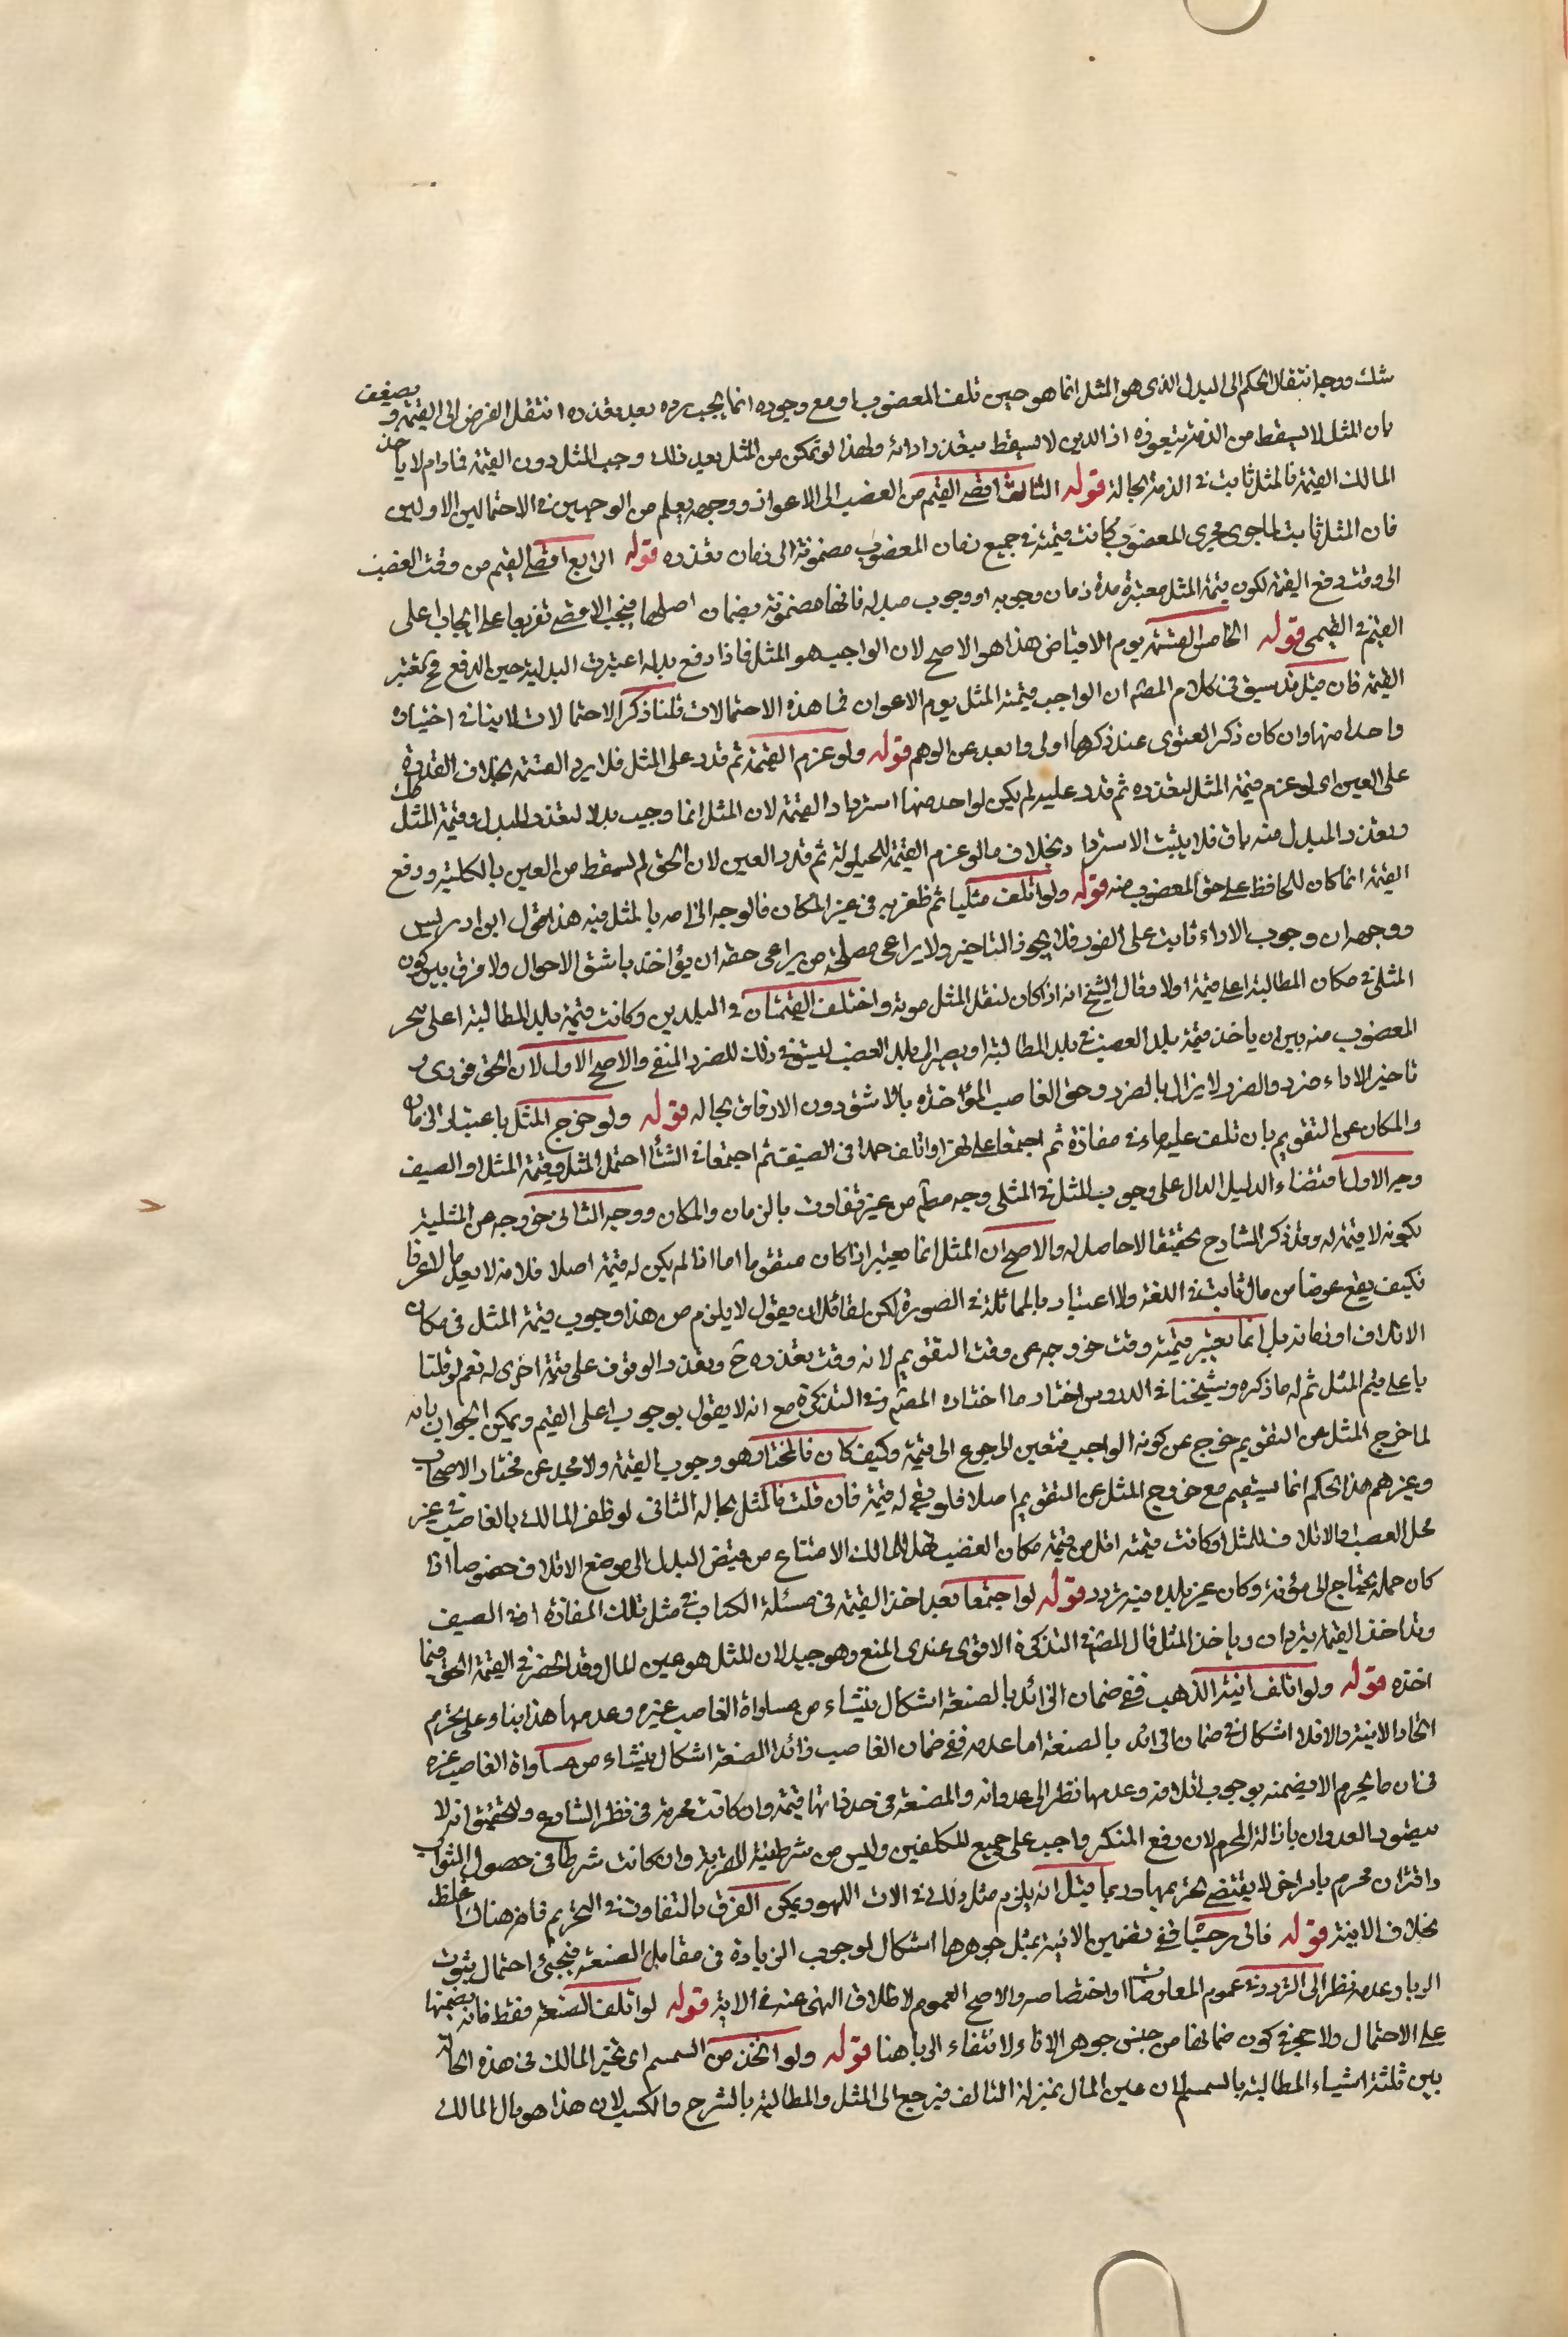 شك ووجه انتقال الحكم الى البدل الذى هو المثل انما هو حين تلف المغصوب او مع وجوده انما يجب رده بعد تعذره انتقل الفرض الى القيمة ويضعف
بان المثل لا يسقط من الذمة بتعوزه اذ الدين لا يسقط بتعذر ادائه ولهذا لو تمكن من المثل بعد ذلك وجب المثل دون القيمة فمادام لا ياخذ
المالك القيمة فالمثل ثابت فى الذمة بحاله قوله الثالث اقصى القيم من الغصب الى الاعواز ووجهه يعلم من الوجهين فى الاحتمالين الاولين
فان المثل ثابت لما جرى مجرى المغصوب كانت قيمته فى جميع زمان المغصوب مضمونة الى زمان تعذره قوله الرابع اقصى القيم من وقت الغصب
الى وقت دفع القيمة لكون قيمة المثل معتبرة مدة زمان وجوبه او وجوب مبدله فانها مضمونة بضمان اصلها فيجب الاقصى تفريعا على ايجاب اعلى
القيم فى القيمى قوله الخامس القيمة يوم الاقباض هذا هو الاصح لان الواجب هو المثل فاذا دفع بدله اعتبرت البدلية حين الدفع فح تعتبر
القيمة فان قيل قد سبق فى كلام المص ان الواجب قيمة المثل يوم الاعواز فما هذه الاحتمالات قلنا ذكر الاحتمالات لا ينافى اختيار
واحد منها وان كان ذكر الفتوى عند ذكرها اولى وابعد عن الوهم قوله ولو غرم القيمة ثم قدر على المثل فلا يرد القيمة بخلاف القدرة
على العين اى لو غرم قيمة المثل لتعذره ثم قدر عليه لم يكن لواحد منهما استرداد القيمة لان المثل انما وجب بدلا لتعذر المبدل وقيمة المثل
وتعذر المبدل منه باق فلا يثبت الاسترداد بخلاف ما لو غرم القيمة للحيلولة ثم قدر العين لان الحق لم يسقط من العين بالكلية ودفع
القيمة انما كان للحافظ على حق المغصوب منه قوله ولو اتلف مثليا ثم ظفر به فى غير المكان فالوجه الزامه بالمثل فيه هذا قول ابن ادريس
ووجهه ان وجوب الاداء ثابت على الفور فلا يجوز التاخير ولا يراعى مصلحة من يراعى حقه ان يؤاخذ باشق الاحوال ولا فرق بين كون
المثل فى مكان المطالبة اعلى قيمة اولا وقال الشيخ انه اذا كان لنقل المثل مونة واختلف القيمتان فى البلدين وكانت قيمة بلد المطالبة اعلى تخير
المغصوب منه بين ان ياخذ قيمة بلد الغصب فى بلد المطالبة او يصبر الى بلد الغصب ليستوفى ذلك للضرر المنفى والاصح الاول لان الحق فورى و
تاخير الاداء ضرر والضرر لا يزال بالضرر وحق الغاصب المؤاخذة بالاشق دون الارفاق بحاله قوله ولو خرج المثل باعتبار الزمان
والمكان عن التقويم بان تلف عليه ماء فى مفازة ثم اجتمعا على نهر او اتلف جمدا فى الصيف ثم اجتمعا فى الشتاء احتمل المثل وقيمة المثل او الصيف
وجه الاول اقتضاء الدليل الدال على وجوب المثل فى المثلى وجه مطلقا من غير تفاوت بالزمان والمكان ووجه الثانى خروجه عن المثلية
بكونه لا قيمة له وقد ذكر الشارح تحقيقا لا حاصل له والاصح ان المثل انما يعتبر اذا كان متقوما اما اذا لم يكن له قيمة اصلا فلا لانه لا يعد مالا عرفا
فكيف يقع عوضا من مال ثابت فى الذمة ولا اعتبار بالمماثلة فى الصورة لكن لقائل ان يقول لا يلزم من هذا وجوب قيمة المثل فى مكان
الاتلاف او زمانه بل انما يعتبر قيمته وقت خروجه عن وقت التقويم لانه وقت تعذره ح وتعذر الوقوف على قيمة اخرى له نعم لو قلنا
باعلى قيم المثل ثم له ما ذكره وشيخنا فى الدروس اختار ما اختاره المص وفى التذكرة مع انه لا يقول بوجوب اعلى القيم ويمكن الجواب بانه
لما خرج المثل عن التقويم خرج عن كونه الواجب فتعين الرجوع الى قيمة وكيف كان فالمختار هو وجوب القيمة ولا محيد عن مختار الاصحاب
وغيرهم هذا الحكم انما يستقيم مع خروج المثل عن التقويم اصلا فلو بقى له قيمة فان قلت فالمثل بحاله الثانى لو ظفر المالك بالغاصب فى غير
محل الغصب والاتلاف للمثل وكانت قيمته اقل من قيمة مكان الغصب فهل للمالك الامتناع من قبض البدل الى موضع الاتلاف خصوصا اذا
كان حمله يحتاج الى مؤنة وكان غير بلده فيه تردد قوله لو اجتمعا بعد اخذ القيمة فى مسئلة الكتاب فى مثل تلك المفازة او فى الصيف
وقد اخذ القيمة يتردان وياخذ المثل قال المص فى التذكرة الاقوى عندى المنع وهو جيد لان المثل هو عين المال وقد انحصر فى القيمة الحق فيما
اخذه قوله ولو اتلف انية الذهب ففى ضمان الزائد بالصنعة اشكال ينشاء من مساواة الغاصب غيره وعدمها هذا بناء على تحريم
اتخاذ الانية والا فلا اشكال فى ضمان الزائد بالصنعة اما عدمه ففى ضمان الغاصب زائد الصنعة اشكال ينشاء من مساواة الغاصب غيره
فى ان ما يحرم لا يضمنه بوجوب اتلافه وعدمها نظر الى عدوانه والصنعة فى حد ذاتها قيمة وان كانت محرمة فى نظر الشارع والتحقيق انه لا
يتصور العدوان بازالة المحرم لان رفع المنكر واجب على جميع المكلفين وليس من شرطه نية القربة وان كانت شرطا فى حصول الثواب
واقتران محرم بامر اخر لا يقتضى تحريمها وربما قيل انه يلزم مثل ذلك فى الات اللهو ويمكن الفرق بالتفاوت فى التحريم فانه هناك اغلظ
بخلاف الانية قوله فان رجحنا ففى تضمين الانية بمثل جوهرها اشكال لوجوب الزيادة فى مقابل الصنعة فيجئ احتمال ثبوت
الربا وعدمه نظر الى التردد فى عموم المعاوضات او اختصاصه والاصح العموم لاطلاق النهى عنه فى الاية قوله لو اتلف الصنعة فقط فانه يضمنها
على الاحتمال ولا حجر فى كون ضمانها من جنس جوهر الاناء ولا انتفاء الربا هنا قوله ولو اتخذ من السمسم اى تخير المالك فى هذه الحالة
بين ثلثة اشياء المطالبة بالسمسم لان عين المال بمنزلة التالف فيرجع الى المثل والمطالبة بالشيرج والكسب لان هذا هو مال المالك